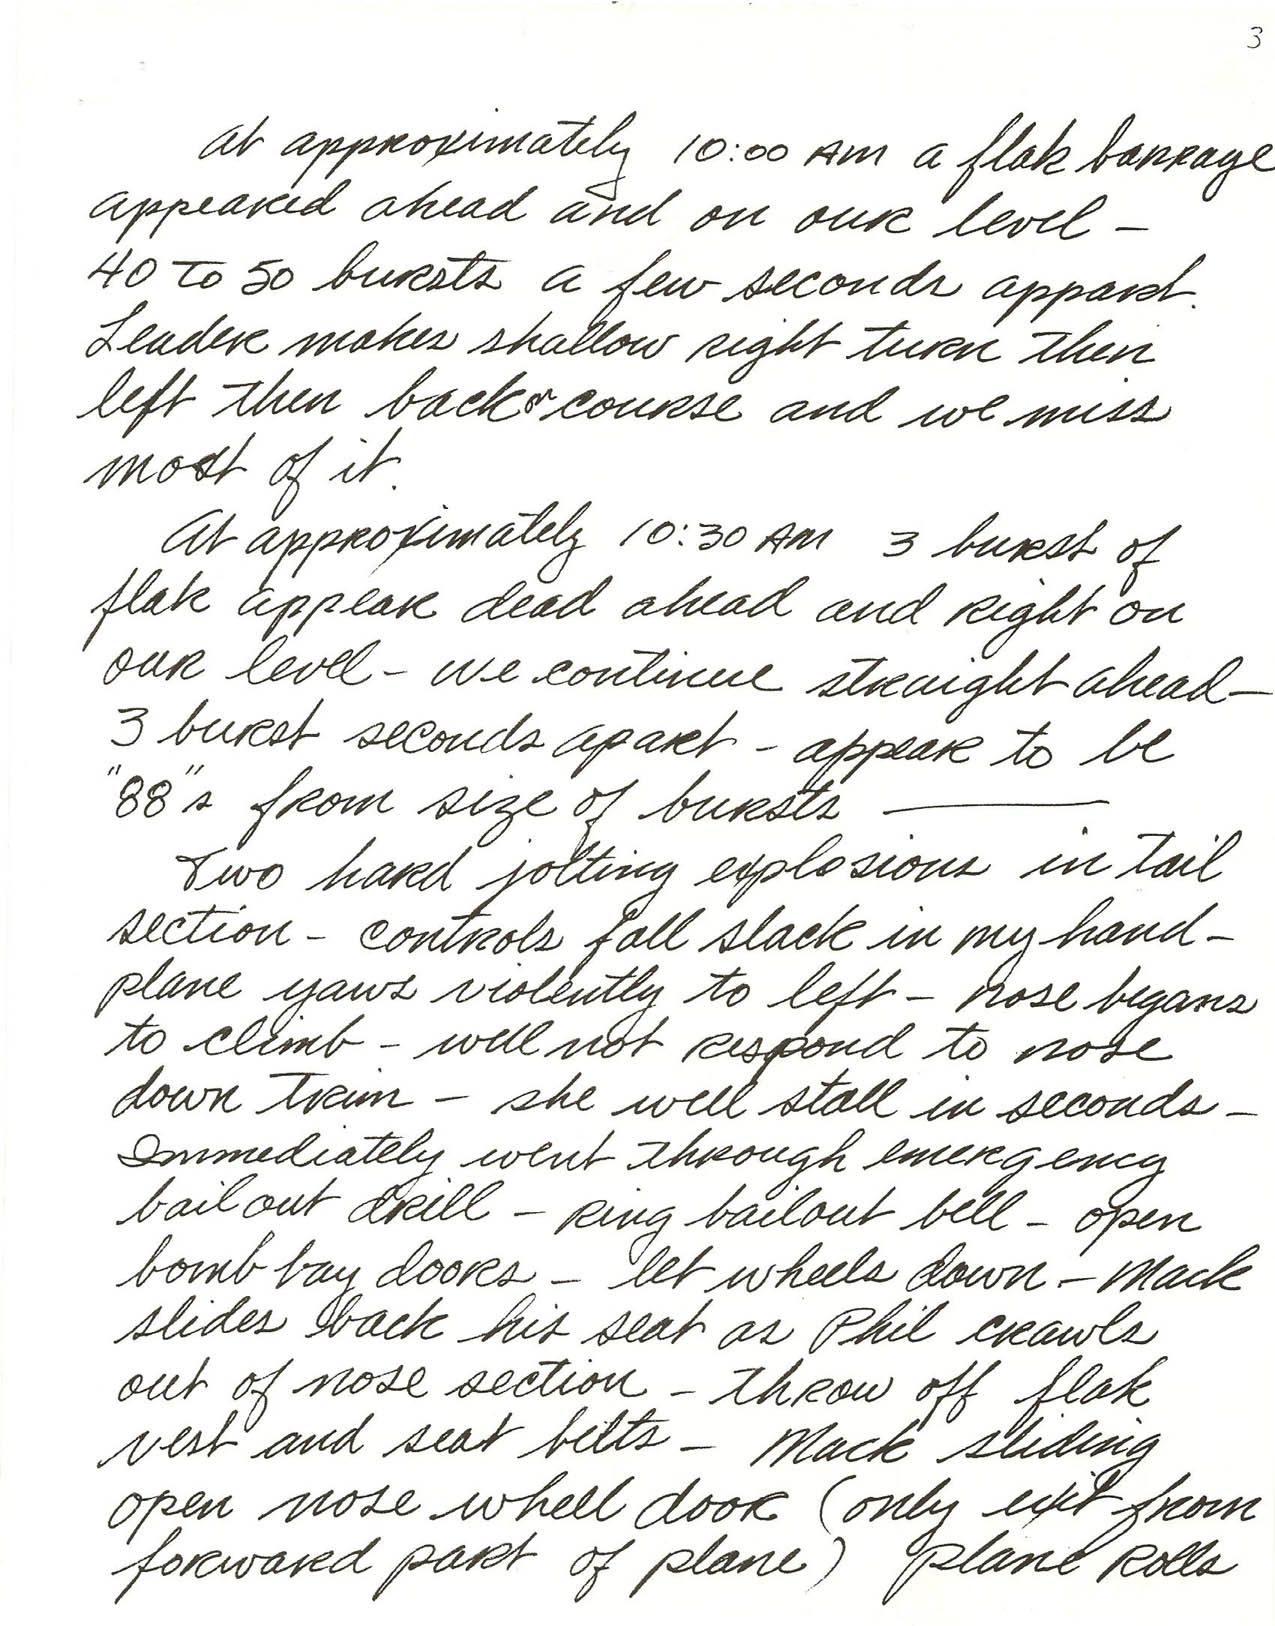 3
At approximately 10:00 AM a flak barrage
appeared ahead and on our level –
40 to 50 bursts a few seconds appart.
Leader makes shallow right turn then
left then back on course and we miss
most of it.
At approximately 10:30 AM 3 burst of
flak appear dead ahead and right on
our level – we continue straight ahead –
3 burst seconds apart – appear to be
"88"s from size of bursts ———
Two hard jolting explosions in tail
section – controls fall slack in my hand –
plane yaws violently to left – nose begans
to climb – will not respond to nose
down trim – she will stall in seconds –
Immediately went through emergency
bail out drill – ring bailout bell – open
bomb bay doors – let wheels down – Mack
slides back his seat as Phil crawls
out of nose section – throw off flak
vest and seat belts – Mack sliding
open nose wheel door (only exit from
forward part of plane) plane rolls